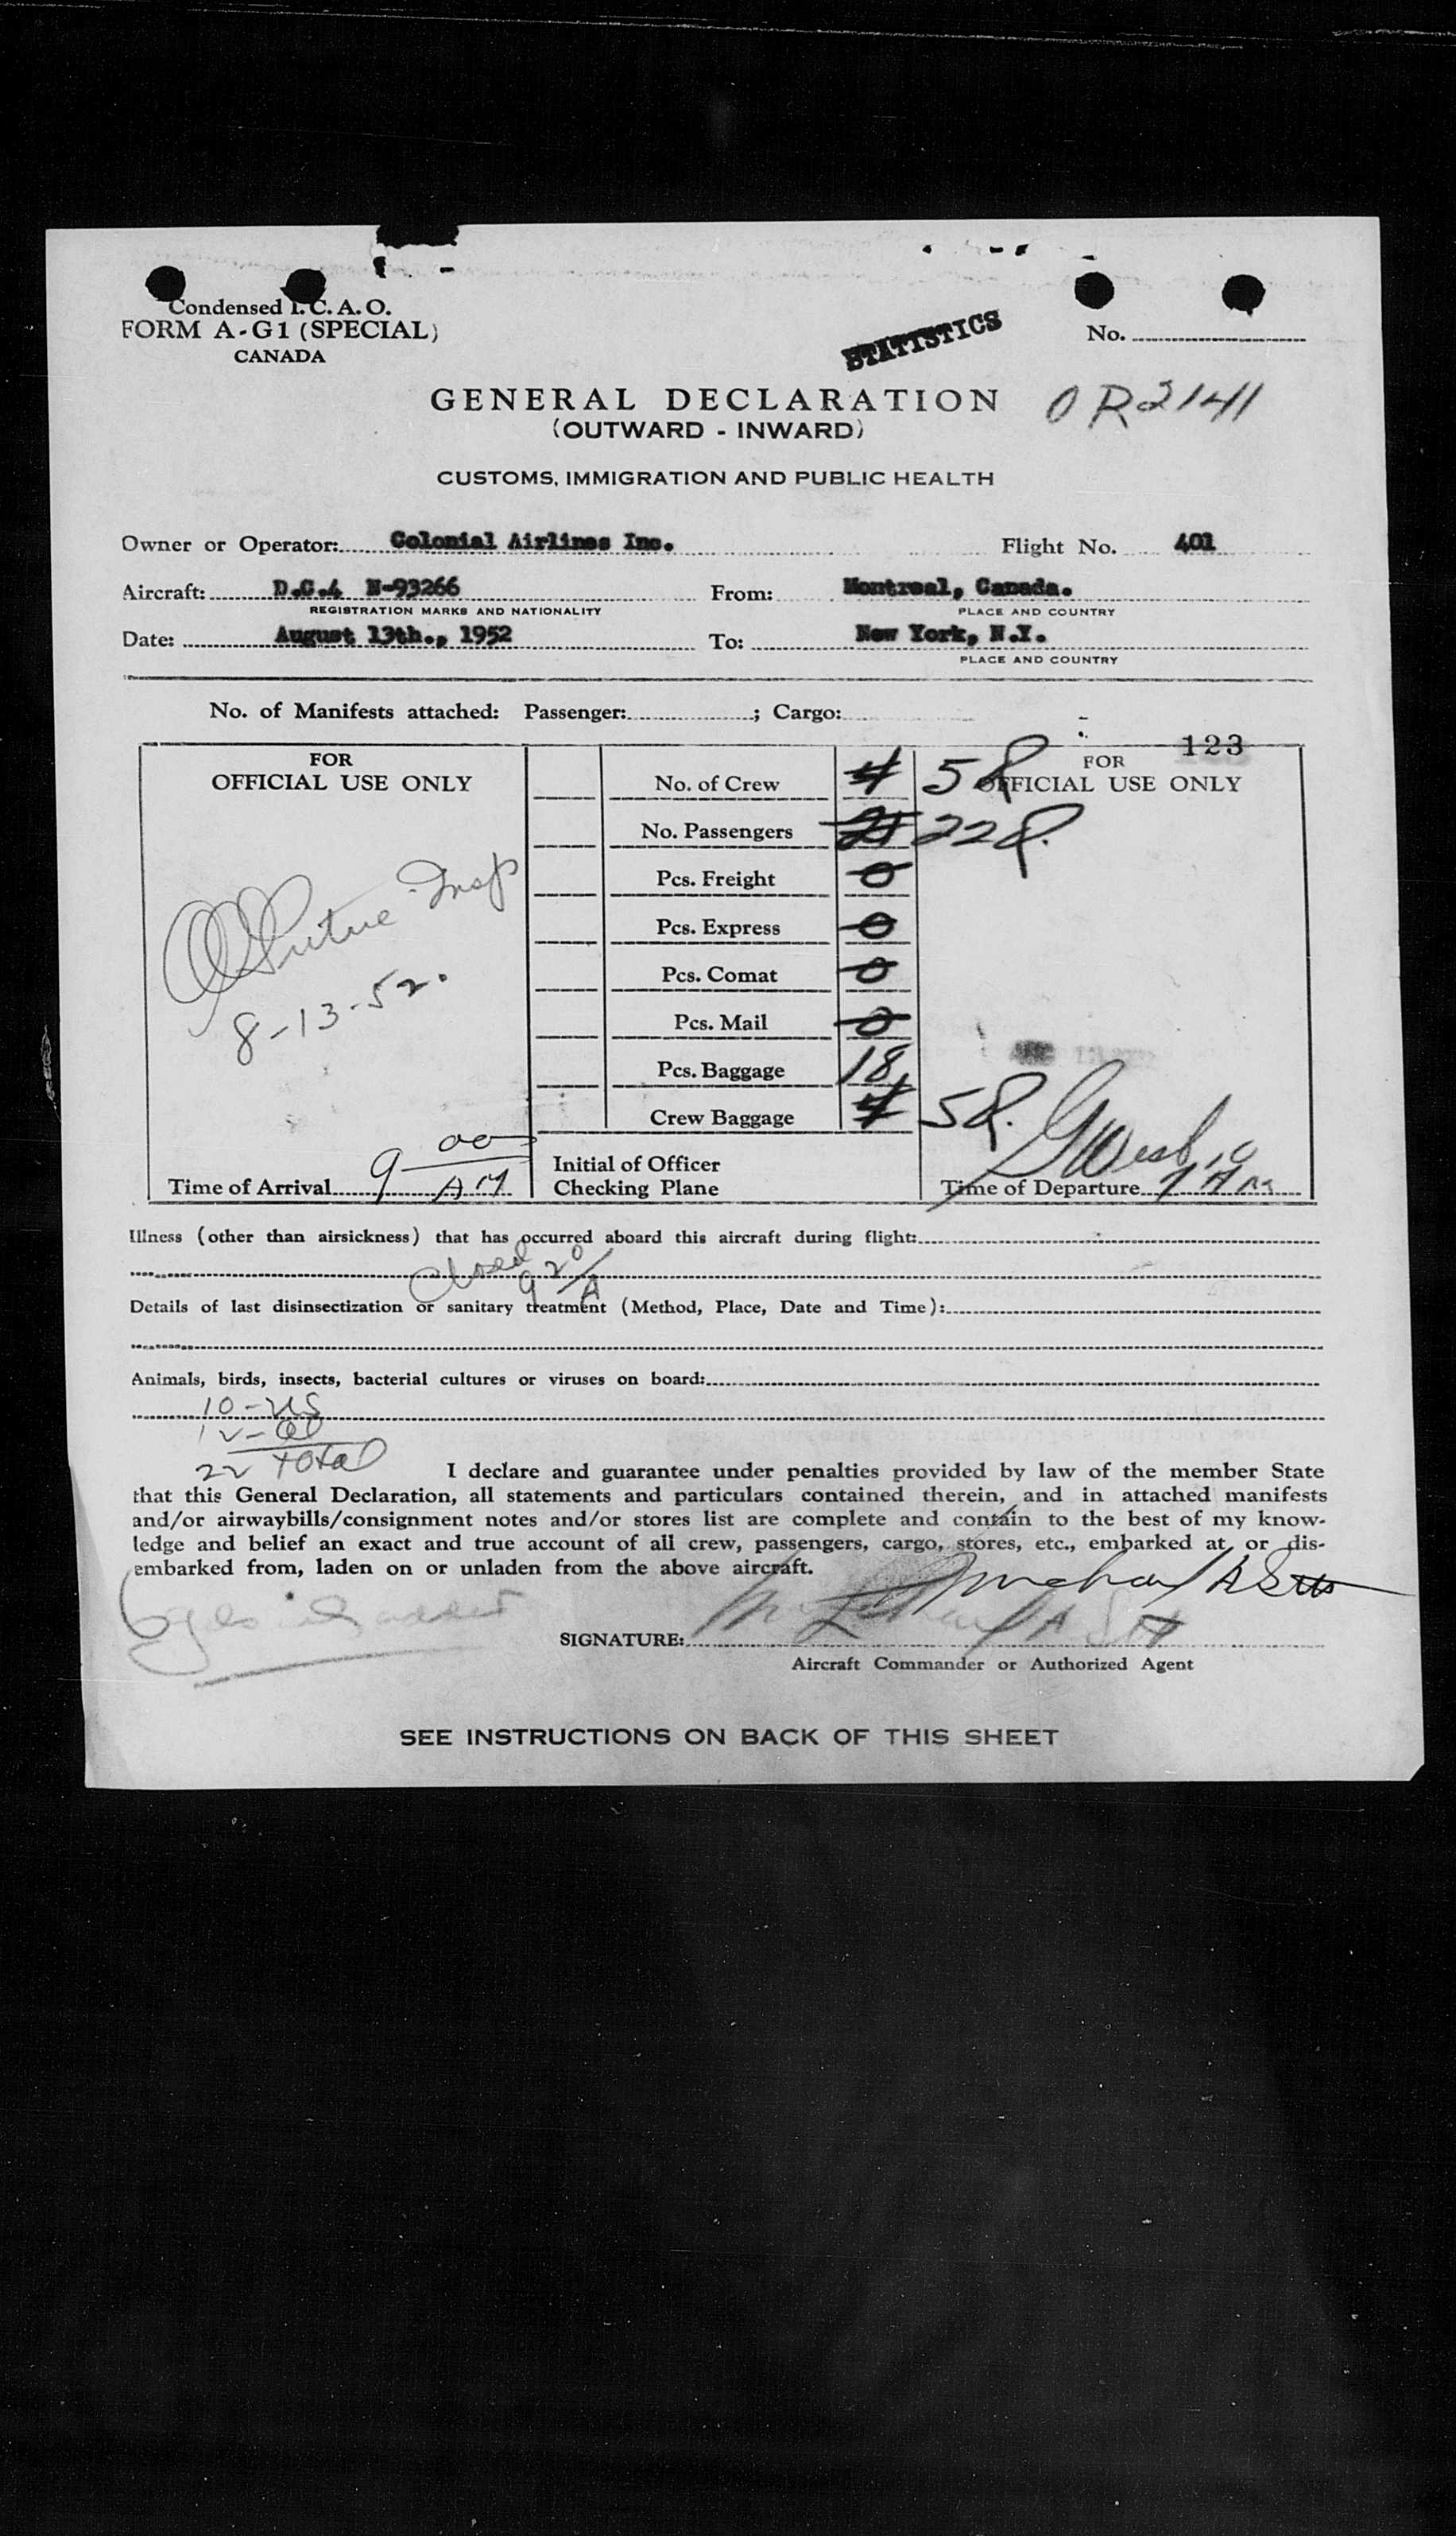 Condensed I.C.A.O.
FORM A-G1 (SPECIAL)
CANADA
STATISTICS
No.
GENERAL DECLARATION
OR2141
(OUTWARD - INWARD)
CUSTOMS, IMMIGRATION AND PUBLIC HEALTH
Owner or Operator: Colonial Airlines Inc. Flight No. 401
Aircraft: D.C.4 N-93266 From: Montreal, Canada.
REGISTRATION MARKS AND NATIONALITY PLACE AND COUNTRY
Date: August 13th., 1952 To: New York, N.Y.
PLACE AND COUNTRY
No. of Manifests attached: Passenger: ; Cargo:
123
FOR
OFFICIAL USE ONLY
No. of Crew 4 5
FOR
OFFICIAL USE ONLY
No. Passengers 21 22
Pcs. Freight 0
Pcs. Express 0
Pcs. Comat 0
Pcs. Mail 0
Pcs. Baggage 18
Crew Baggage 4 5
Insp
8-13-52.
Initial of Officer
Checking Plane
Time of Arrival 9 00 AM
Time of Departure
Illness (other than airsickness) that has occurred aboard this aircraft during flight:
Closed 9 20/A
Details of last disinsectization or sanitary treatment (Method, Place, Date and Time):
Animals, birds, insects, bacterial cultures or viruses on board:
10-US
12-
22 total
I declare and guarantee under penalties provided by law of the member State
that this General Declaration, all statements and particulars contained therein, and in attached manifests
and/or airwaybills/consignment notes and/or stores list are complete and contain to the best of my know-
ledge and belief an exact and true account of all crew, passengers, cargo, stores, etc., embarked at or dis-
embarked from, laden on or unladen from the above aircraft.
SIGNATURE:
Aircraft Commander or Authorized Agent
SEE INSTRUCTIONS ON BACK OF THIS SHEET